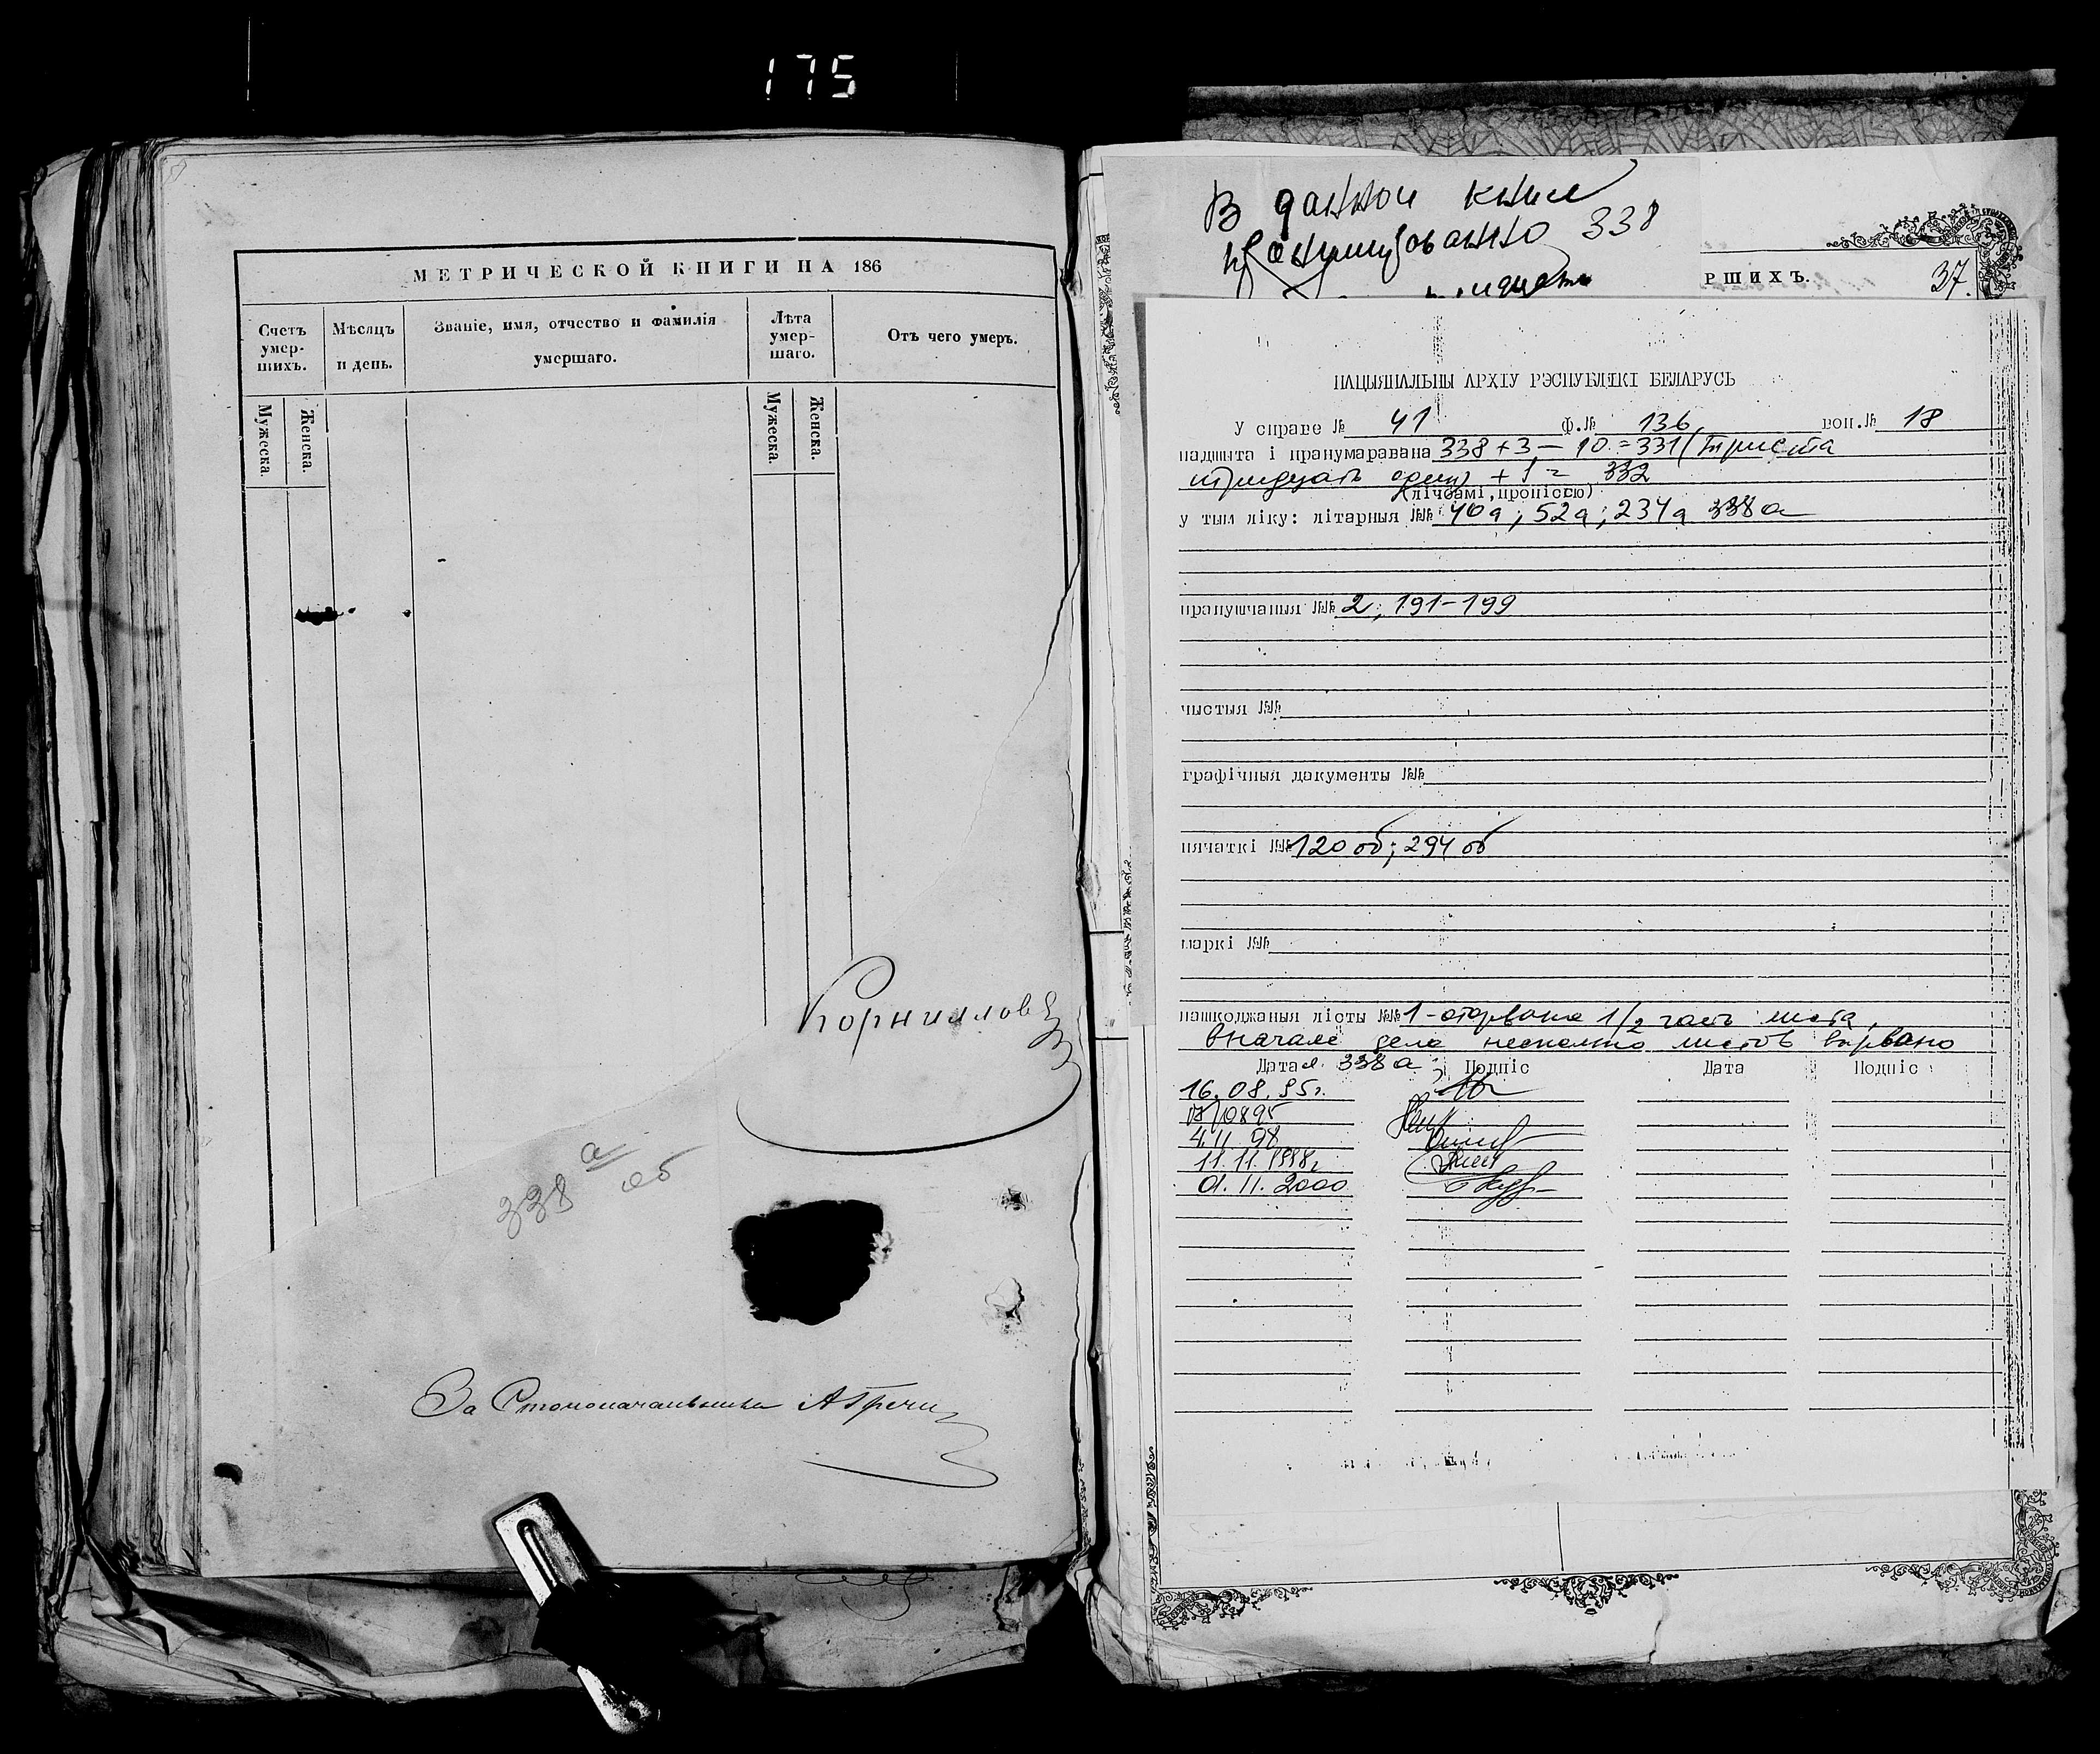 175
МЕТРИЧЕСКОЙ КНИГИ НА 186
Счетъ умер-шихъ.
Мѣсяцъ и день.
Званіе, имя, отчество и фамилія умершаго.
Лѣта умер-шаго.
Отъ чего умеръ.
Мужеска.
Женска.
Мужеска.
Женска.
Корниллов
338 а об
За Столоначальника
В данной книге
пронумеровано 338
РШИХЪ.
37.
НАЦЫЯНАЛЬНЫ АРХІУ РЭСПУБЛІКІ БЕЛАРУСЬ
У справе № 41 ф.№ 136 воп.№ 18
падшыта і пранумаравана 338+3-10=331 (триста
тридцать один) +1= 332
(лічбамі, пропіссю)
у тым ліку: літарныя №№ 40а; 52а; 234а 338а
прапушчаныя №№ 2; 191-199
чыстыя №№
графічныя дакументы №№
пячаткі №№ 120 об; 294 об
маркі №№
пашкоджаныя лісты №№ 1-оторвана 1/2 часть листа,
вначале дела несколько листов вырвано
л. 338а;
Дата Подпіс Дата Подпіс
16.08.95г.
4.11 98
11.11.1998г
01.11.2000